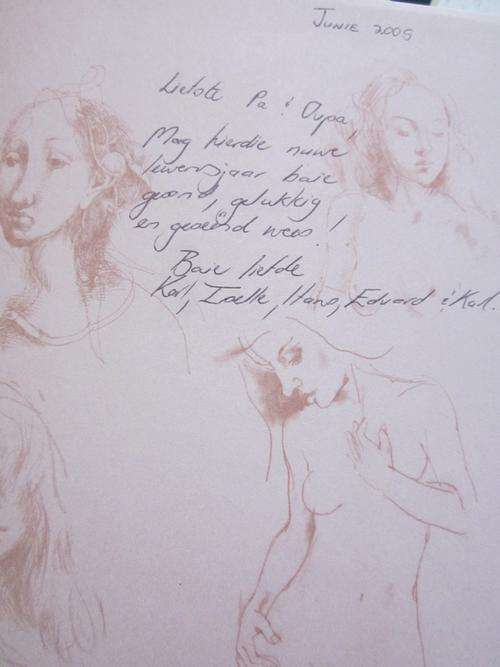 JUNIE 2009
Liefste Pa & Oupa,
Mag hierdie nuwe
lewensjaar baie
gesond, gelukkig
en geseënd wees!
Baie liefde
Karl, Isette, Hans, Eduard & Karl.